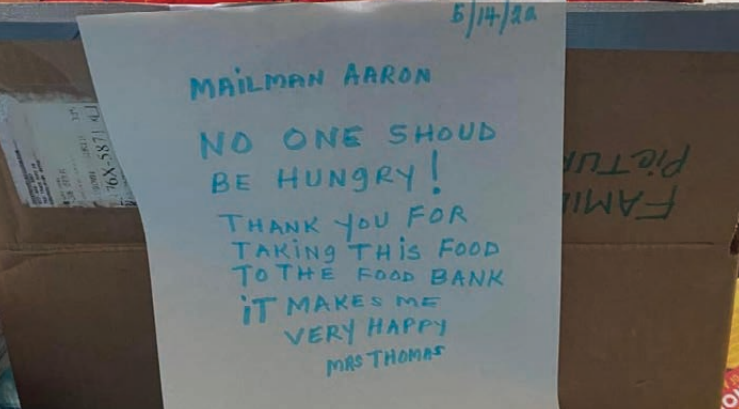 5/14/22
MAILMAN AARON
NO ONE SHOUD
BE HUNGRY!
THANK YOU FOR
TAKING THIS FOOD
TO THE FOOD BANK
IT MAKES ME
VERY HAPPY
MRS THOMAS
FAMI
PICTU